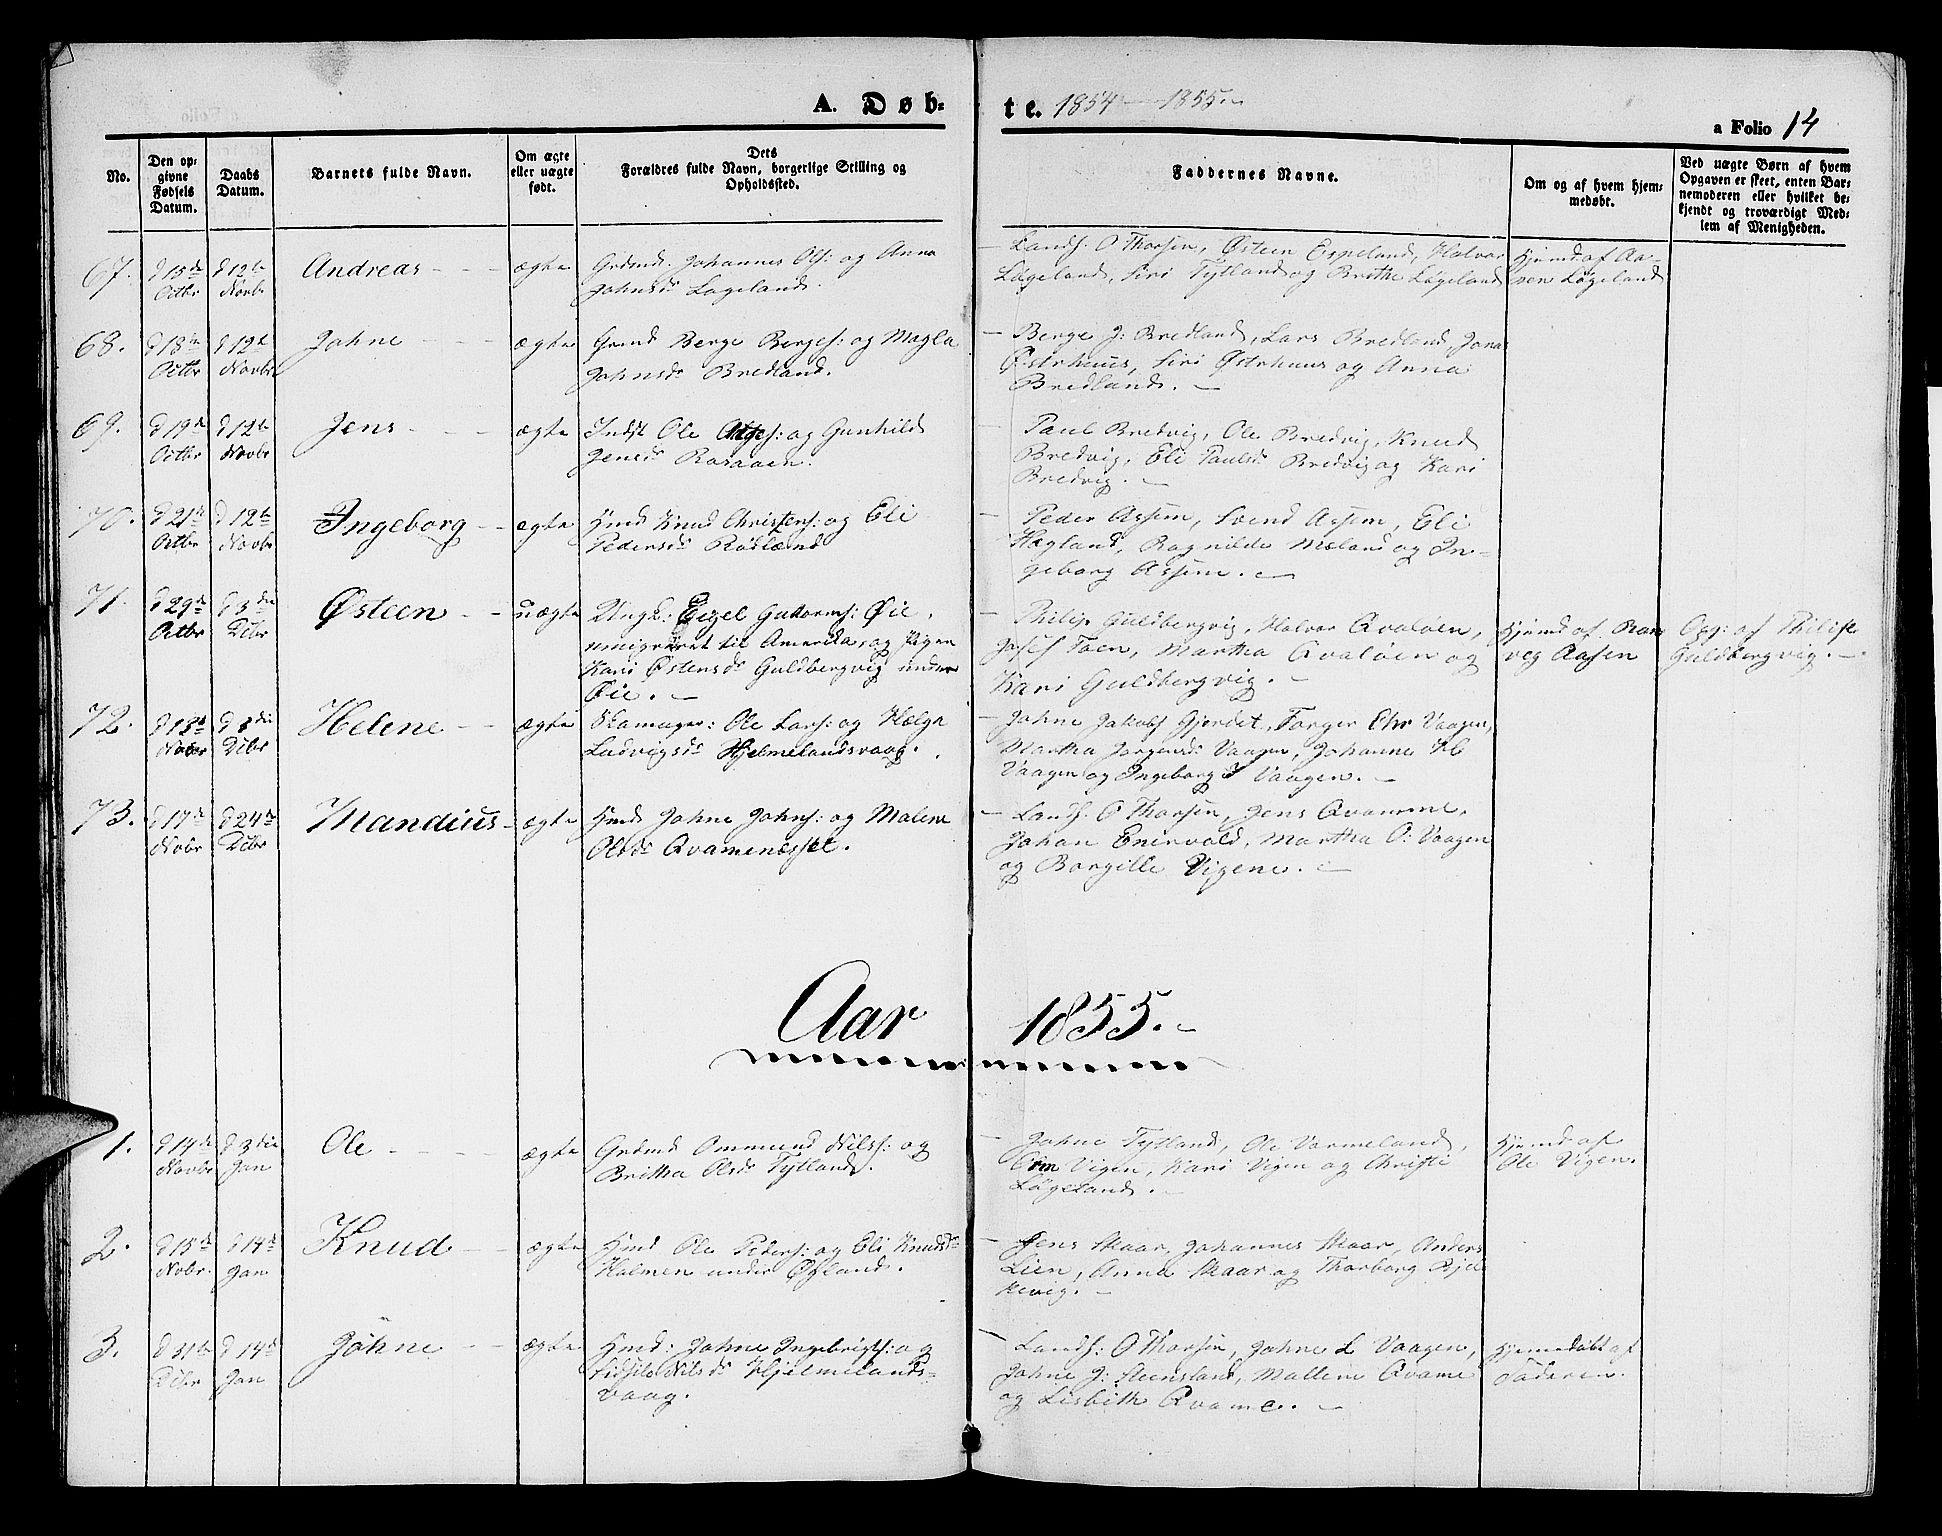 A. Døb-
te. 1854 — 1855.
a Folio 14
No.
Den op-
givne
Fødsels
Datum.
Daabs
Datum.
Barnets fulde Navn.
Om ægte
eller uægte
født.
Dets
Forældres fulde Navn, borgerlige Stilling og
Opholdssted.
Faddernes Navne.
Om og af hvem hjem-
medøbt.
Ved uægte Børn af hvem
Opgaven er skeet, enten Bar-
nemoderen eller hvilket be-
kjendt og troværdigt Med-
lem af Menigheden.
67. d 15de Octbr d 12te Novbr Andreas ægte
Grdmd. Johannes Ols: og Anna
Johnsd. Løgeland.
Lands: O Thorsen, Østeen Espeland, Halvor
Løgeland, Siri Tytland og Brithe Løgeland
Hjemd af Aa-
sen Løgeland
68. d 18de Octbr d 12te Novbr Johne ægte
Grmd Berge Berges: og Magla
Johnsd. Bredland.
Berge J: Bredland, Lars Bredland, Jona
Østrhuus, Siri Østrhuus og Anna
Bredland.
69. d 19de Octbr d 12te Novbr Jens ægte
Indst Ole og Gunhild
Jensd.
Paul Bredvig, Ole Bredvig, Knud
Bredvig, Eli Paulsd. Bredvig og Kari
Bredvig.
70. d 21de Octbr d 12te Novbr Ingeborg ægte
Hmd Knud Christens: og Eli
Pedersd. Rødland
Peder Assem, Svend Assem, Eli
Hægland, Ragnilde Mæland og In-
geborg Assem.
71. d 29de Octbr d 3die Dcbr Østeen uægte
Ungk: Eegel Guttorms: Øie,
emigreret til Amerika, og Pigen
Kari Østensd. Guldbergvig under
Øie.
Philip Guldbergvig, Halvor Qvaløen,
Josef Toen, Martha Qvaløen og
Kari Guldbergvig.
Hjemd af Ran
veg Aasen
Opg: af Philip
Guldbergvig.
72. d 18de Novbr d 3die Dcbr Helene ægte
Skomager: Ole Lars: og Hælga
Ludvigsd. Hjelmelandsvaag.
Johne Jakobs Gjerdet, Torger Chr Vaagen,
Martha Jørgensd. Vaagen, Johanne
Vaagen og Ingeborg Vaagen.
73. d 17de Novbr d 24de Dcbr Mandius ægte
Hmd Johne Johns: og Malene
Olsd. Qvamenesset.
Lands: O Thorsen, Jens Qvamme,
Johan Enervold, Martha O: Vaagen
og Borgille Vigene.
Aar 1855.
1. d 14de Novbr d 3die Jan Ole ægte
Grdmd Ommund Nilss: og
Britha Olsd. Tytland.
Johne Tytland, Ole Varmeland,
Orm Vigen, Kari Vigen og Christi
Løgeland.
Hjemd af
Ole Vigen.
2. d 15de Novbr. d 14de Jan Knud ægte
Hmd Ole Peders: og Eli Knudsd.
Holmen under Øfland.
Jens Skaar, Johannes Skaar, Anders
Lien, Anna Skaar og Thorborg Bjel
kevig.
3. d 31te Dcbr d 14de Jan Johne ægte
Hmd: Johne Ingebrigts: og
Sidsile Nilsd. Hjelmelands-
vaag.
Lands: O Thorsen, Johne L Vaagen,
Johne J: Steensland, Mallene Qvame
og Lisbeth Qvame.
Hjemmedøbt af
Faderen.